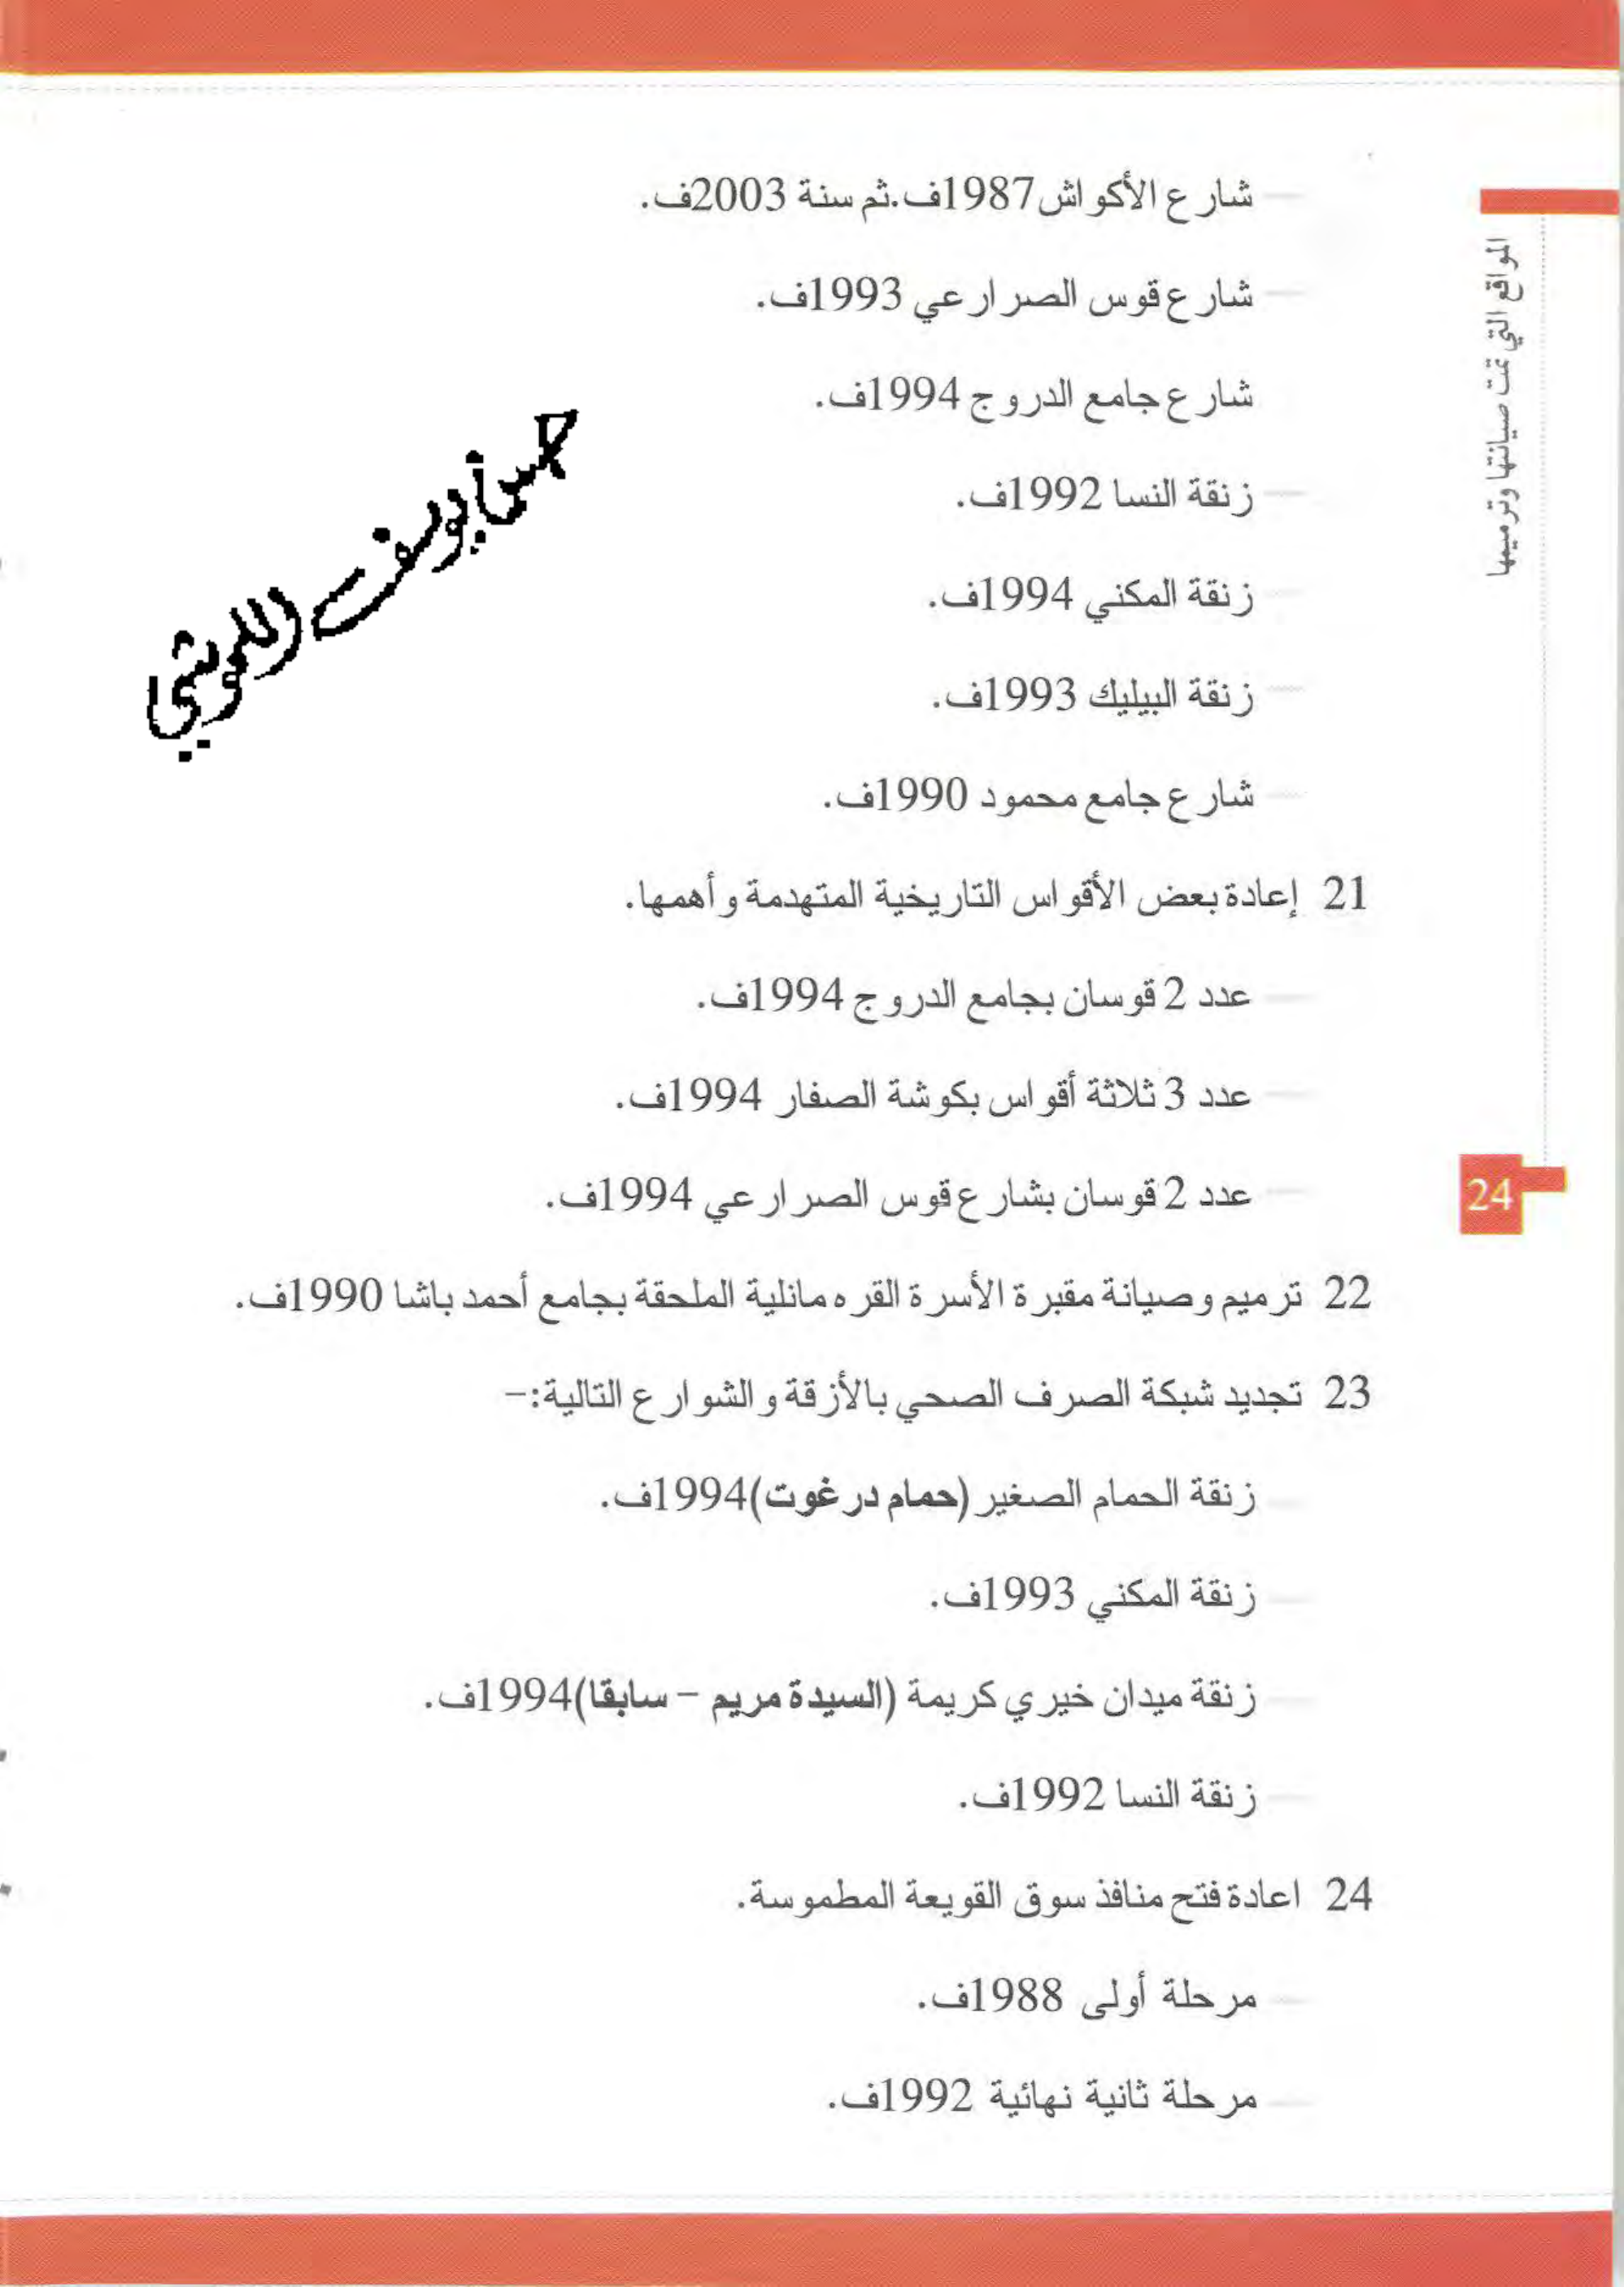 – شارع الأكواش1987ف.ثم سنة 2003ف.
– شارع قوس الصرارعي 1993ف.
شارع جامع الدروج 1994ف.
– زنقة النسا 1992ف.
– زنقة المكني 1994ف.
– زنقة البيليك 1993ف.
– شارع جامع محمود 1990ف.
21 إعادة بعض الأقواس التاريخية المتهدمة وأهمها.
– عدد 2 قوسان بجامع الدروج 1994ف.
– عدد 3 ثلاثة أقواس بكوشة الصفار 1994ف.
– عدد 2 قوسان بشارع قوس الصرارعي 1994ف.
22 ترميم وصيانة مقبرة الأسرة القره مانلية الملحقة بجامع أحمد باشا 1990ف.
23 تجديد شبكة الصرف الصحي بالأزقة والشوارع التالية:–
– زنقة الحمام الصغير (حمام درغوت)1994ف.
– زنقة المكني 1993ف.
– زنقة ميدان خيري كريمة (السيدة مريم – سابقا)1994ف.
– زنقة النسا 1992ف.
24 اعادة فتح منافذ سوق القويعة المطموسة.
– مرحلة أولى 1988ف.
– مرحلة ثانية نهائية 1992ف.
المواقع التي تمت صيانتها وترميمها
24